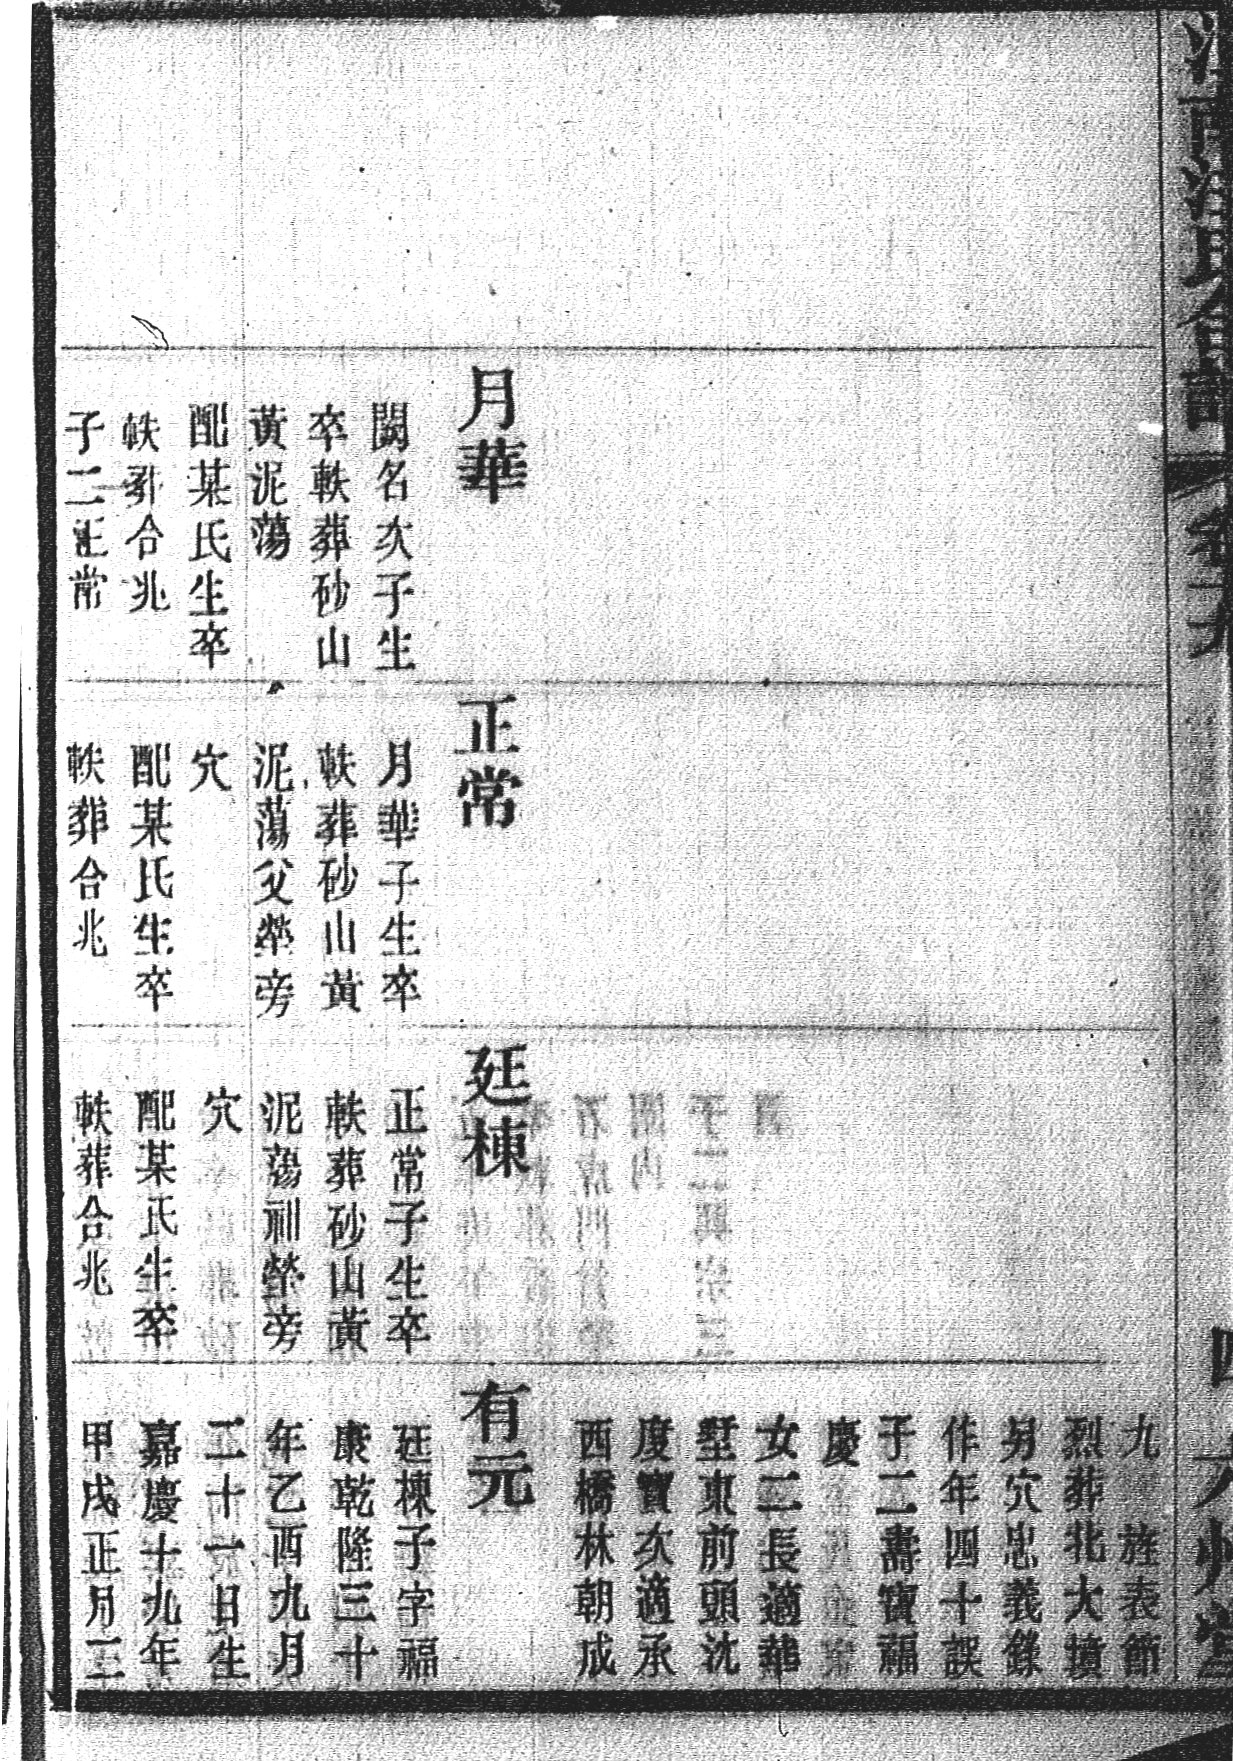 月華
闕名次子生
卒軼葬砂山
黃泥蕩
配某氏生卒
軼葬合兆
子二正常
正常
月華子生卒
軼葬砂山黃
泥蕩父塋旁
穴
配某氏生卒
軼葬合兆
廷棟
正常子生卒
軼葬砂山黃
泥蕩祖塋旁
穴
配某氏生卒
軼葬合兆
九 旌表節
烈葬北大墳
另穴忠義錄
作年四十誤
子二壽寶福
慶
女二長適華
墅東前頭沈
度寶次適承
西橋林朝成
有元
廷棟子字福
康乾隆三十
年乙酉九月
二十一日生
嘉慶十九年
甲戌正月二